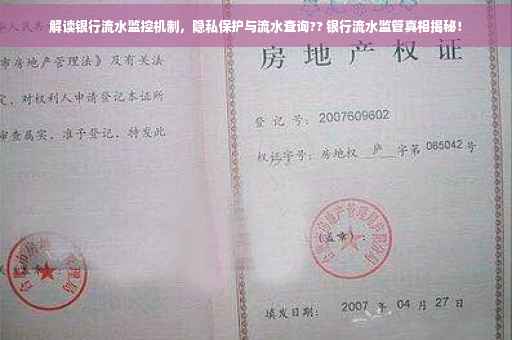 解读银行流水监控机制，隐私保护与流水查询?? 银行流水监管真相揭秘！
市房地产管理法》及有关法
定，对权利人申请登记本证所
审查属实，准予登记，特发此
房 地 产 权
登 记 号：2007609602
权证字号：房地权 庐 字第 065042 号
（盖章）：
填发日期： 2007 年 04 月 27 日